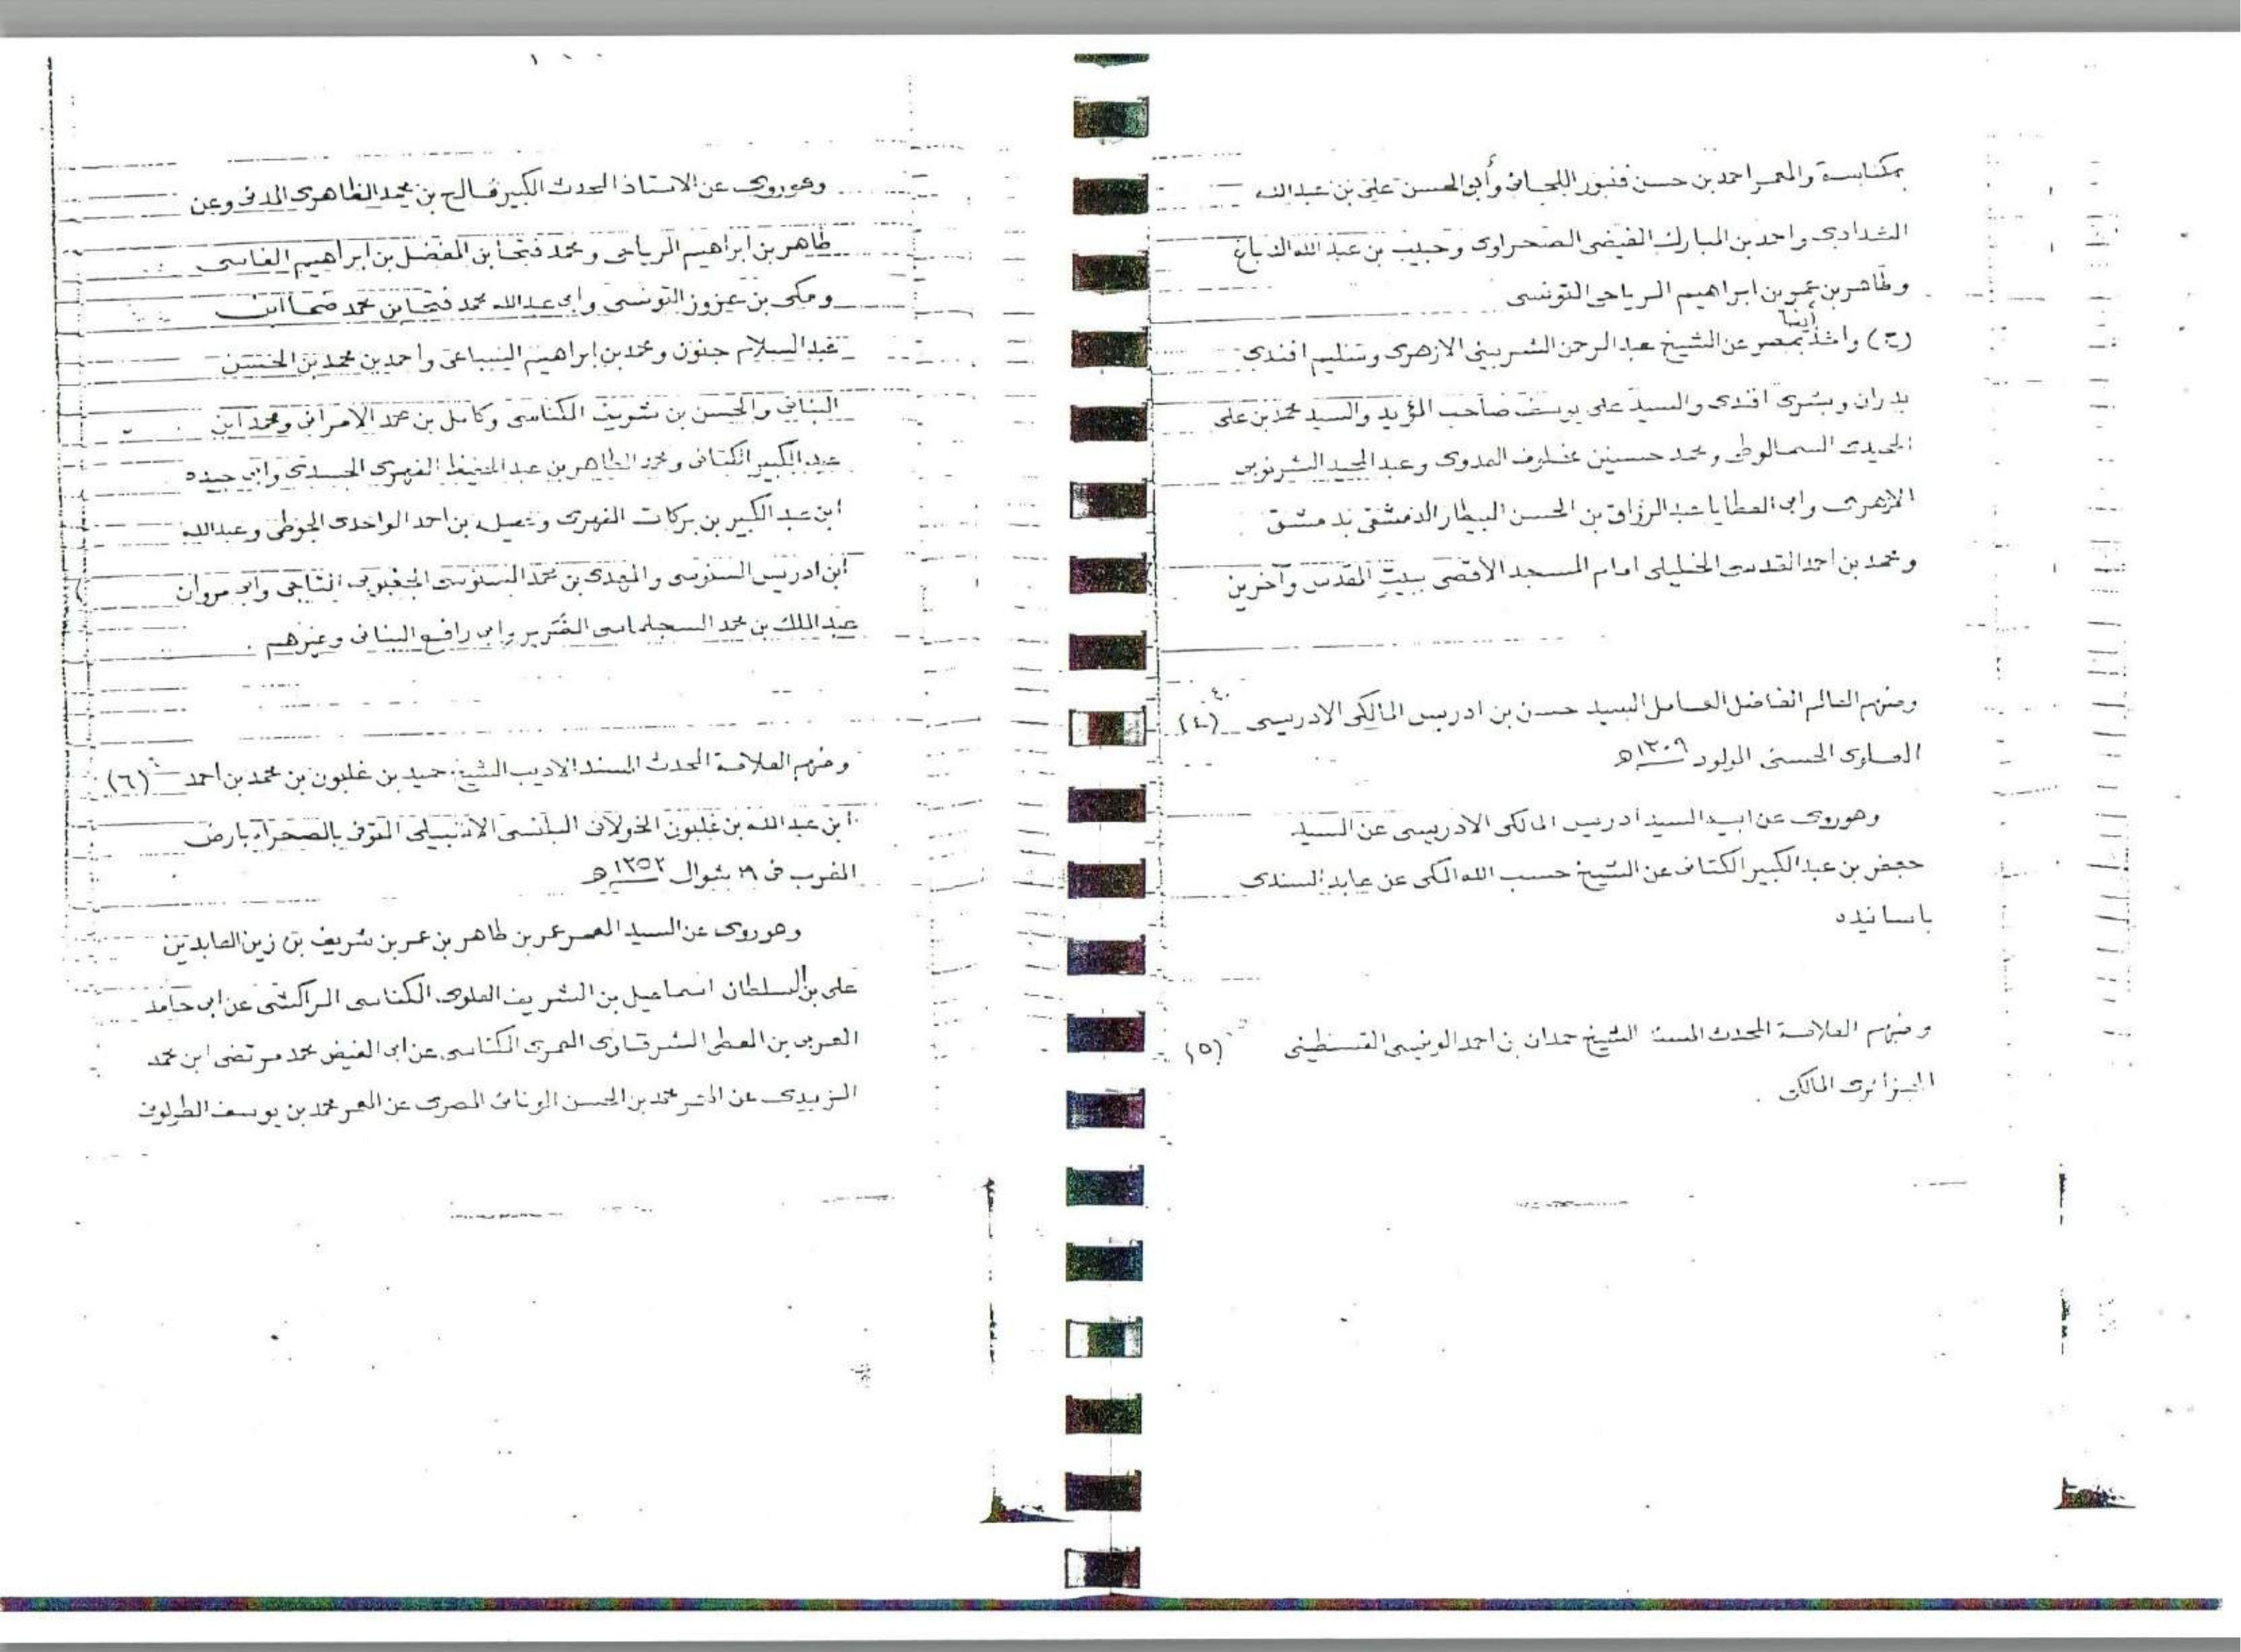 بمكناسة والمعمر احمد بن حسن فنبور اللجائى وأبى الحسن على بن عبدالله
الشدادى واحمد بن المبارك الفيضى الصحراوى وحبيب بن عبد الله الدباغ
وطاهر بن عمر بن ابراهيم الرياحى التونسى
(ح) واخذ أيضا بمصر عن الشيخ عبد الرحمن الشربينى الازهرى وسليم افندى
بدران وبشرى افندى والسيد على يوسف صاحب المؤيد والسيد محمد بن على
السمالوطى ومحمد حسنين مخلوف العدوى وعبد المجيد الشرنوبى
الازهرى وابى العطايا عبد الرزاق بن الحسن البيطار الدمشقى بدمشق
ومحمد بن احمد القدسى الخليلى امام المسجد الأقصى ببيت المقدس وآخرين
ومنهم العالم الفاضل العامل السيد حسن بن ادريس المالكى الادريسى (٤)
الحسنى المولود ١٣٠٩ھ
وهو روى عن ابيه السيد ادريس المالكى الادريسى عن السيد
جعفر بن عبد الكبير الكتانى عن الشيخ حسب الله المكى عن عابد السندى
باسانيده
ومنهم العلامة المحدث المسند الشيخ حمدان بن احمد الونيسى القسنطينى (٥)
الجزائرى المالكى .
وهو روى عن الاستاذ المحدث الكبير فالح بن محمد الظاهرى المدنى وعن
طاهر بن ابراهيم الرياحى ومحمد فتحا بن المفضل بن ابراهيم الفاسى
ومكى بن عزوز التونسى وابى عبد الله محمد فتحا بن محمد ضما ابن
عبد السلام جنون ومحمد بن ابراهيم السباعى واحمد بن محمد بن الحسن
البنانى والحسن بن شريف الكناسى وكامل بن محمد الامرانى ومحمد ابن
عبد الكبير الكتانى ومحمد الطاهر بن عبد الحفيظ الفهرى وابى جيده
ابن عبد الكبير بن بركات الفهرى بن احمد الواحدى وعبد الله
ابن ادريس السنوسى والمهدى بن محمد السنوسى الجغبوبى التاجى وابى مروان
عبد الملك بن محمد السجلماسى الضرير وابى رافع البنانى وغيرهم .
ومنهم العلامة المحدث المسند الاديب الشيخ حميد بن غلبون بن محمد بن احمد (٦)
ابن عبد الله بن غلبون الخولانى البلنسى الاشبيلى المتوفى بالصحراء بارض
المغرب فى شوال ١٣٥٢ھ
وهو روى عن السيد المعمر عمر بن طاهر بن عمر بن شريف بن زين العابدين
على بن السلطان اسماعيل بن الشريف العلوى المكناسى المراكشى عن ابى حامد
العربى بن المعطى الشرقاوى العمرى المكناسى عن ابى الفيض محمد مرتضى ابن محمد
الزبيدى عن المعمر محمد بن الحسن الونائى المصرى عن المعمر محمد بن يوسف الطولونى